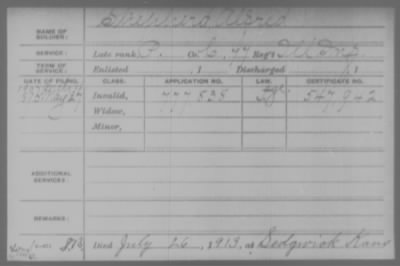 NAME OF SOLDIER: Alfred
SERVICE: Late rank, P. Co. G, 77 Reg't Ill Inf
TERM OF SERVICE: Enlisted , 1 Discharged , 1
DATE OF FILING. CLASS. APPLICATION NO. LAW. CERTIFICATE NO.
Invalid, 777838 547,942
Widow,
Minor,
ADDITIONAL SERVICES:
REMARKS:
Died July 26, 1913, at Sedgwick Kans